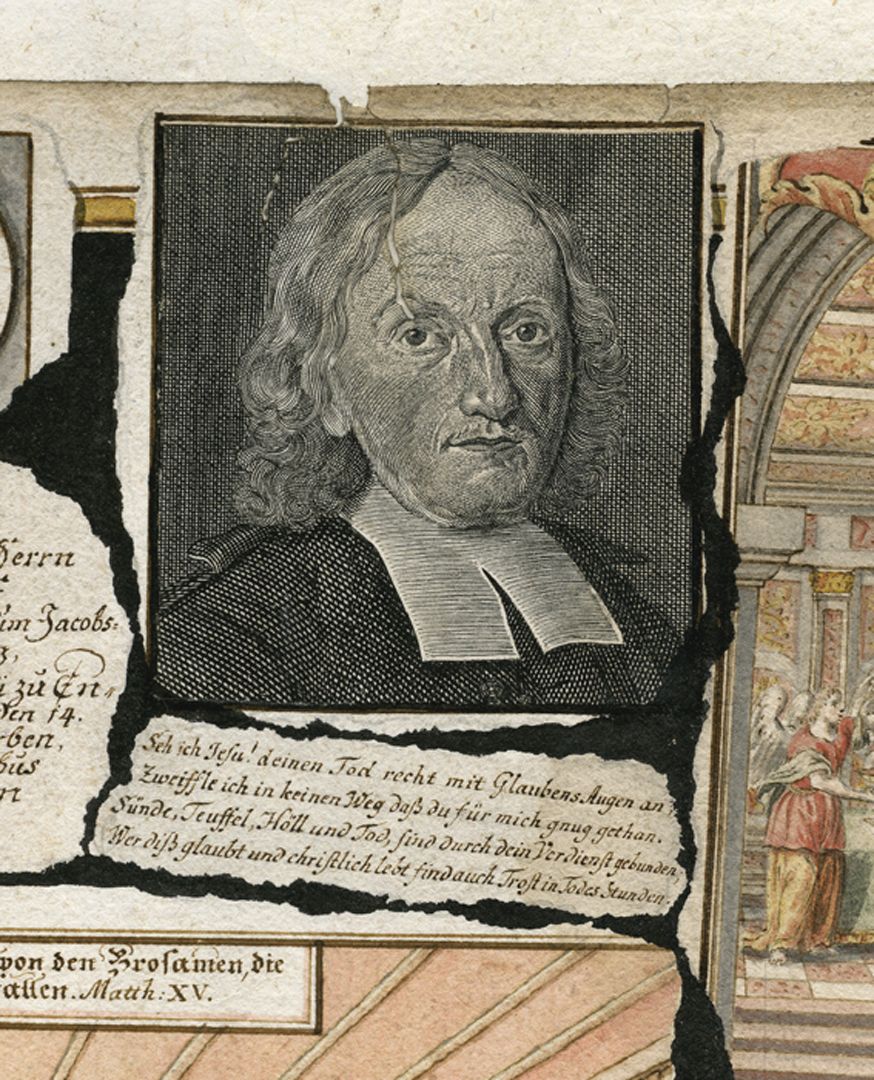 Herrn
im Jacobs-
i zu En,
den 14.
rben,
bus
n
Seh ich Jesu! deinen Tod recht mit Glaubens Augen an,
Zweiffle ich in keinen Weg daß du für mich gnug gethan.
Sünde, Teuffel, Höll und Tod, sind durch dein Verdienst gebunden,
Wer diß glaubt und christlich lebt find auch Trost in Todes Stunden.
von den Brosamen, die
allen. Matth: XV.